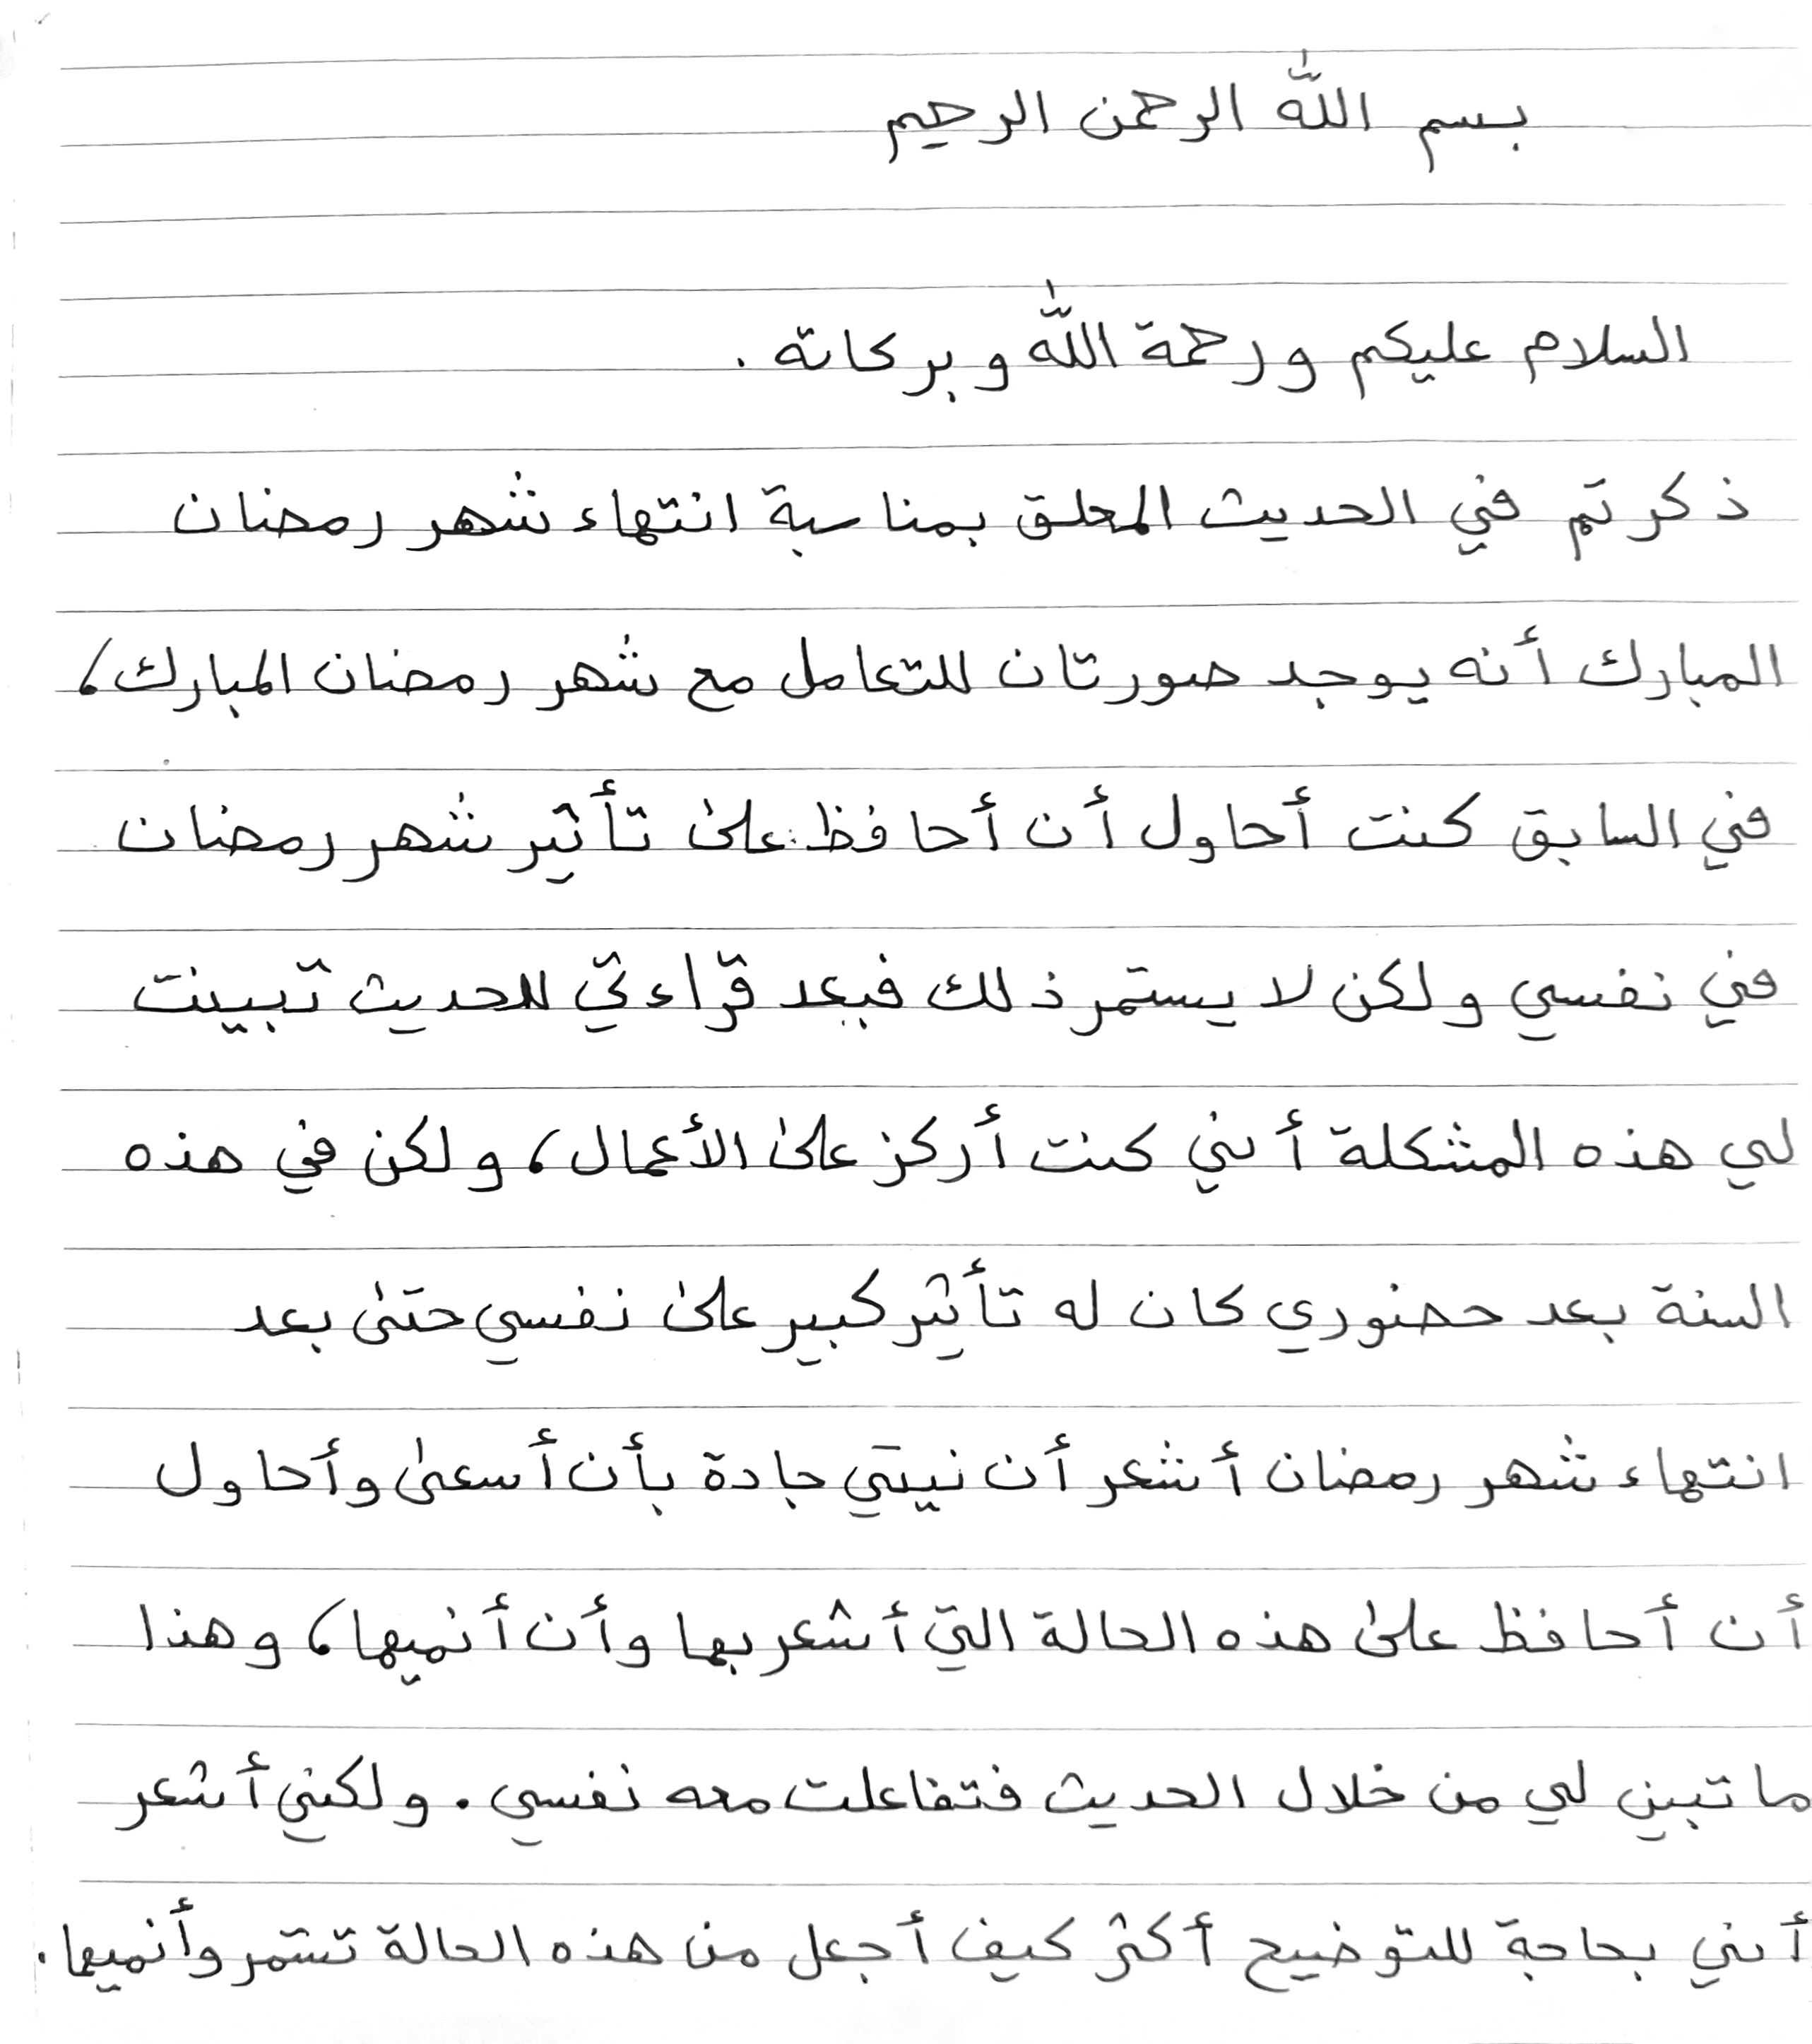 بسم الله الرحمن الرحيم
السلام عليكم ورحمة الله وبركاته .
ذكرتم في الحديث المعلق بمناسبة انتهاء شهر رمضان
المبارك أنه يوجد صورتان للتعامل مع شهر رمضان المبارك،
في السابق كنت أحاول أن أحافظ على تأثير شهر رمضان
في نفسي ولكن لا يستمر ذلك فبعد قراءتي للحديث تبينت
لي هذه المشكلة أنني كنت أركز على الأعمال، ولكن في هذه
السنة بعد حضوري كان له تأثير كبير على نفسي حتى بعد
انتهاء شهر رمضان أشعر أن نيتي جادة بأن أسعى وأحاول
أن أحافظ على هذه الحالة التي أشعر بها وأن أنميها، وهذا
ما تبين لي من خلال الحديث فتفاعلت معه نفسي. ولكني أشعر
أنني بحاجة للتوضيح أكثر كيف أجعل من هذه الحالة تستمر وأنميها.